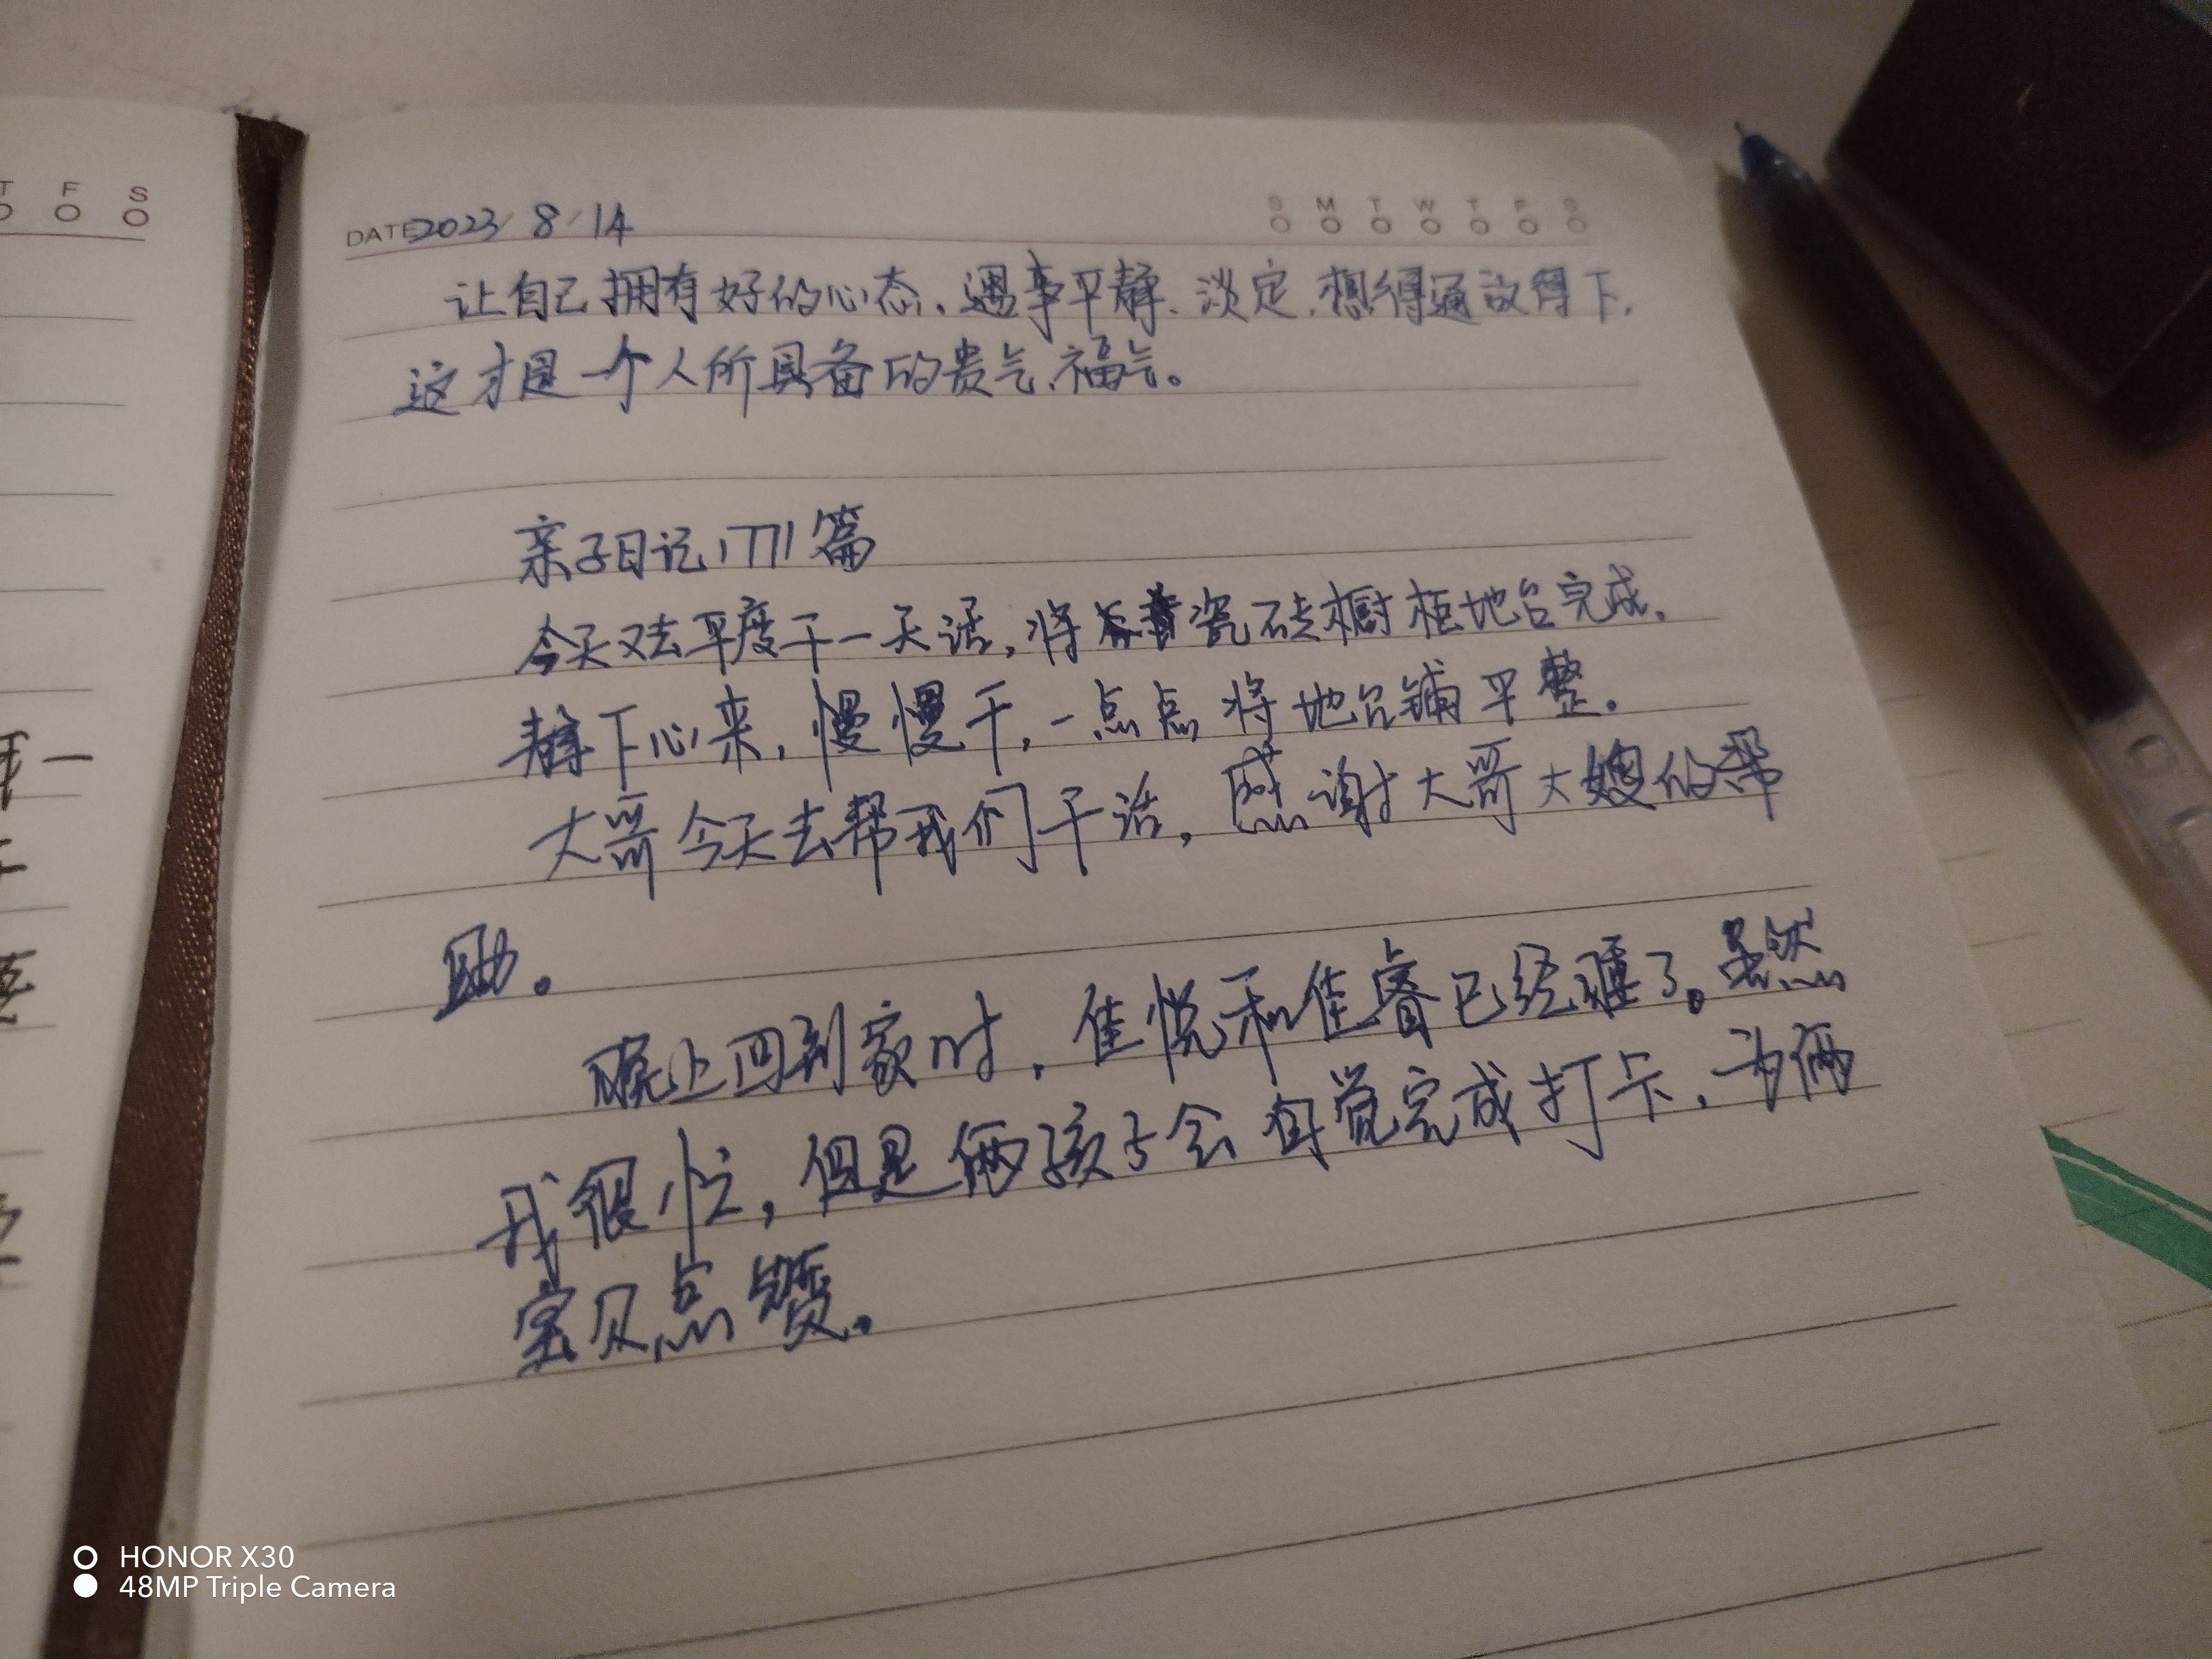 T F S
DATE 2023/8/14
S M T W T F S
让自己拥有好的心态。遇事平静、淡定,想得通放得下,
这才是一个人所具备的贵气、福气。
亲子日记1771篇
今天又去平度干一天活,将瓷砖橱柜地台完成,
静下心来,慢慢干,一点点将地台铺平整。
大哥今天去帮我们干活,感谢大哥大嫂的帮
助。
晚上回到家时,佳悦和佳睿已经睡了。虽然
我很忙,但是俩孩子会自觉完成打卡,为俩
宝贝点赞。
HONOR X30
48MP Triple Camera